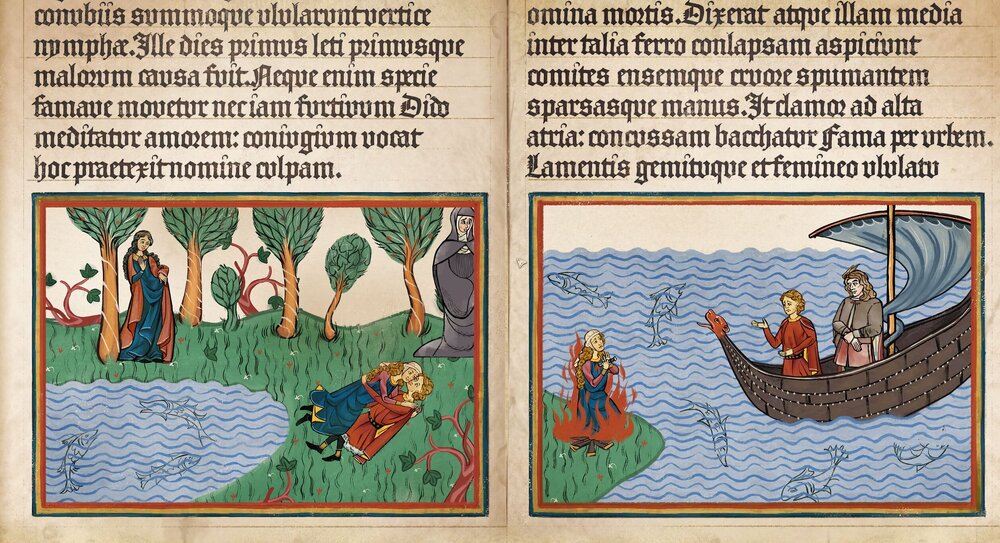 conubiis summoque ulularuntvertice
nymphæ. Ille dies primus leti primusque
malorum causa fuit. Neque enim specie
famave movetur nec iam furtivum Dido
meditatur amorem: coniugium vocat
hoc praetexit nomine culpam.
omina mortis. Dixerat atque illam media
inter talia ferro conlapsam aspiciunt
comites ensemque cruore spumantem
sparsasque manus. It clamor ad alta
atria: concussam bacchatur Fama per urbem.
Lamentis gemituque et femineo ululatu